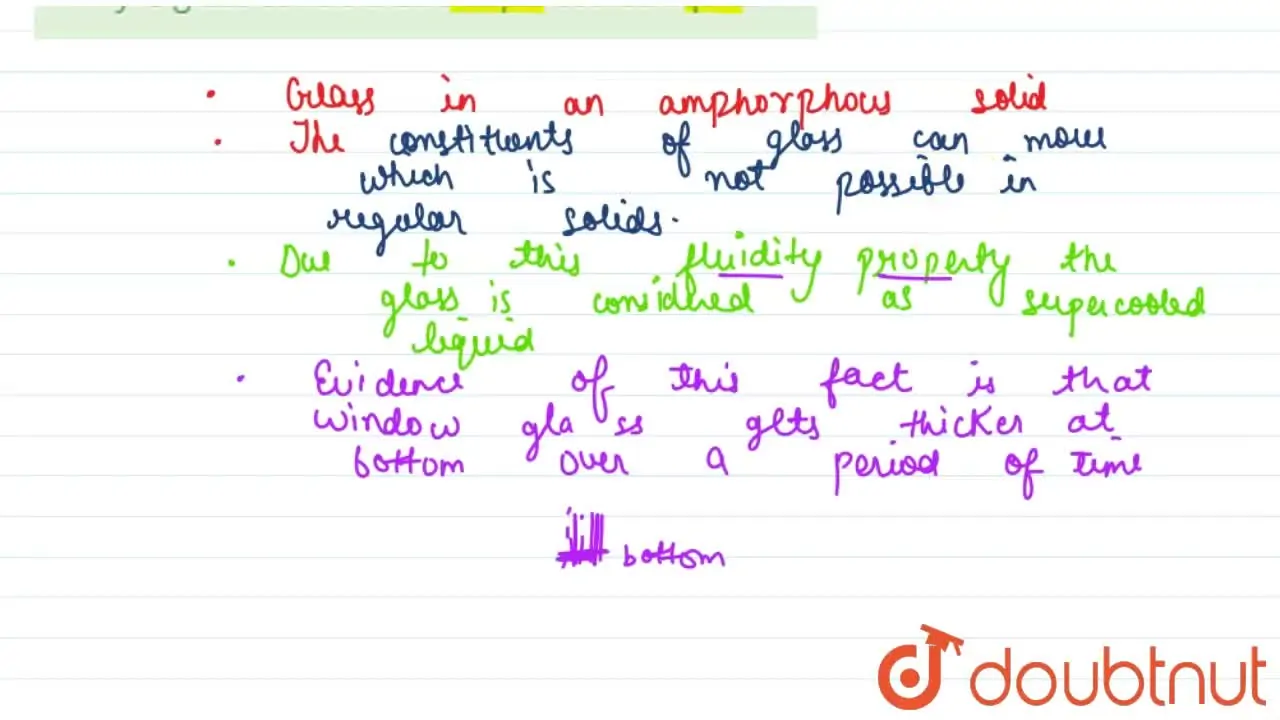 • Glass in an amphorphous solid
• The constituents of glass can move
which is not possible in
regular solids.
• Due to this fluidity property the
glass is considered as supercooled
liquid
• Evidence of this fact is that
window glass gets thicker at
bottom over a period of time
bottom
doubtnut